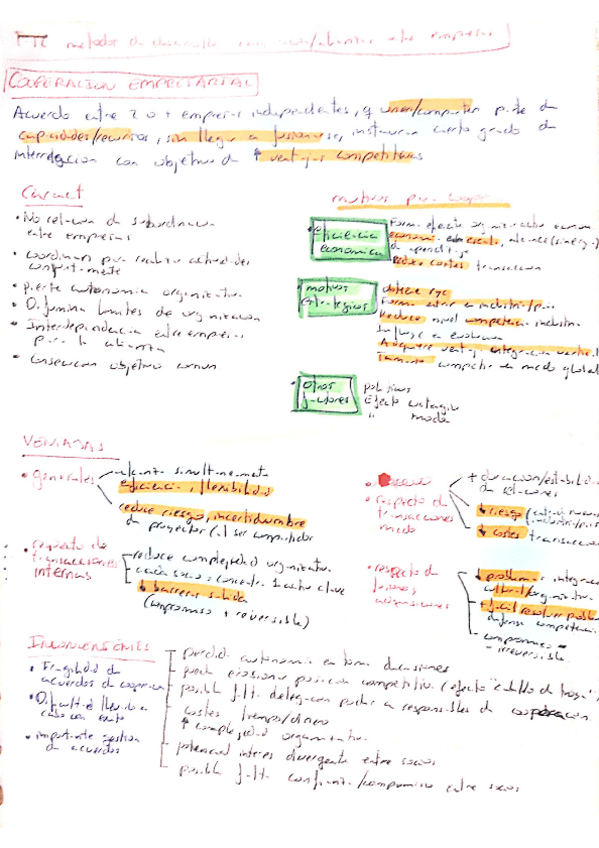 métodos de desarrollo entre empresas
COOPERACION EMPRESARIAL
Acuerdo entre 2 o + empresas independientes, q unen/comparten parte de
capacidades/recursos, sin llegar a fusionarse, instauran cierto grado de
interrelación con objetivo de ↑ ventajas competitivas
Caract
• No relación de subordinación
entre empresas
• coordinan para realizar actividades
conjuntamente
• pierte autonomia organizativa
• Difumina limites de organización
• Interdependencia entre empresas
para la alianza
• consecución objetivo comun
motivos para coop
• eficiencia
economica
Forma efecto organización comun
economia escala, alcance (sinergia)
d aprendizaje
Reduce costes transaccion
• motivos
estrategicos
obtiene
Forma entrar en industria/
Reduce nivel competencia industria
Influye en evolucion
Adquiere ventaja integracion vertical
Tamaño competir en modo global
• otros
factores
politicos
Efecto contagio
" moda
VENTAJAS
• generales
alcanza simultaneamente
eficiencia, flexibilidad
reduce riesgo, incertidumbre
de proyectos (al ser compartido)
• respecto de
transacciones
internas
reduce complejidad organizativa
cada socio concentra 1 activ clave
↓ barreras salida
(compromiso + reversible)
• respecto de
transacciones
mcdo
+ duracion/estabilidad
de relaciones
↓ riesgo
↓ costes transaccion
• respecto de
fusiones,
adquisiciones
↓ problemas integracion
cultural/organizativa
+ facil resolver problemas
defensa competencia
compromiso
irreversible
INCONVENIENTES
• Fragilidad de
acuerdos de cooperación
• Dificultad llevarlo a
cabo con exito
• importante gestion
de acuerdos
perdida autonomia en toma decisiones
puede erosionar posicion competitiva (efecto "caballo de troya")
posible falta delegacion poder a responsables de cooperacion
costes tiempo/dinero
↑ complejidad organizativa
potencial interes divergente entre socios
posible falta confianza/compromiso entre socios